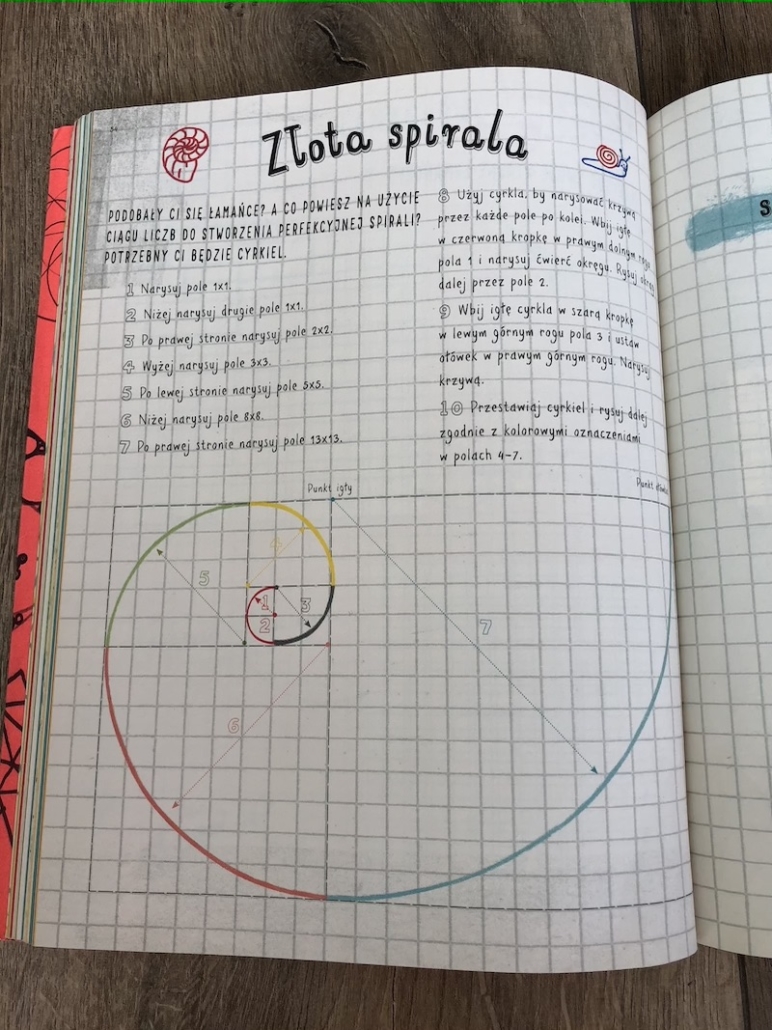 Złota spirala
PODOBAŁY CI SIĘ ŁAMAŃCE? A CO POWIESZ NA UŻYCIE
CIĄGU LICZB DO STWORZENIA PERFEKCYJNEJ SPIRALI?
POTRZEBNY CI BĘDZIE CYRKIEL.
1 Narysuj pole 1x1.
2 Niżej narysuj drugie pole 1x1.
3 Po prawej stronie narysuj pole 2x2.
4 Wyżej narysuj pole 3x3.
5 Po lewej stronie narysuj pole 5x5.
6 Niżej narysuj pole 8x8.
7 Po prawej stronie narysuj pole 13x13.
8 Użyj cyrkla, by narysować krzywą
przez każde pole po kolei. Wbij igłę
w czerwoną kropkę w prawym dolnym rogu
pola 1 i narysuj ćwierć okręgu. Rysuj okrąg
dalej przez pole 2.
9 Wbij igłę cyrkla w szarą kropkę
w lewym górnym rogu pola 3 i ustaw
ołówek w prawym górnym rogu. Narysuj
krzywą.
10 Przestawiaj cyrkiel i rysuj dalej
zgodnie z kolorowymi oznaczeniami
w polach 4-7.
Punkt igły
Punkt
4
5
1
3
2
7
6
S